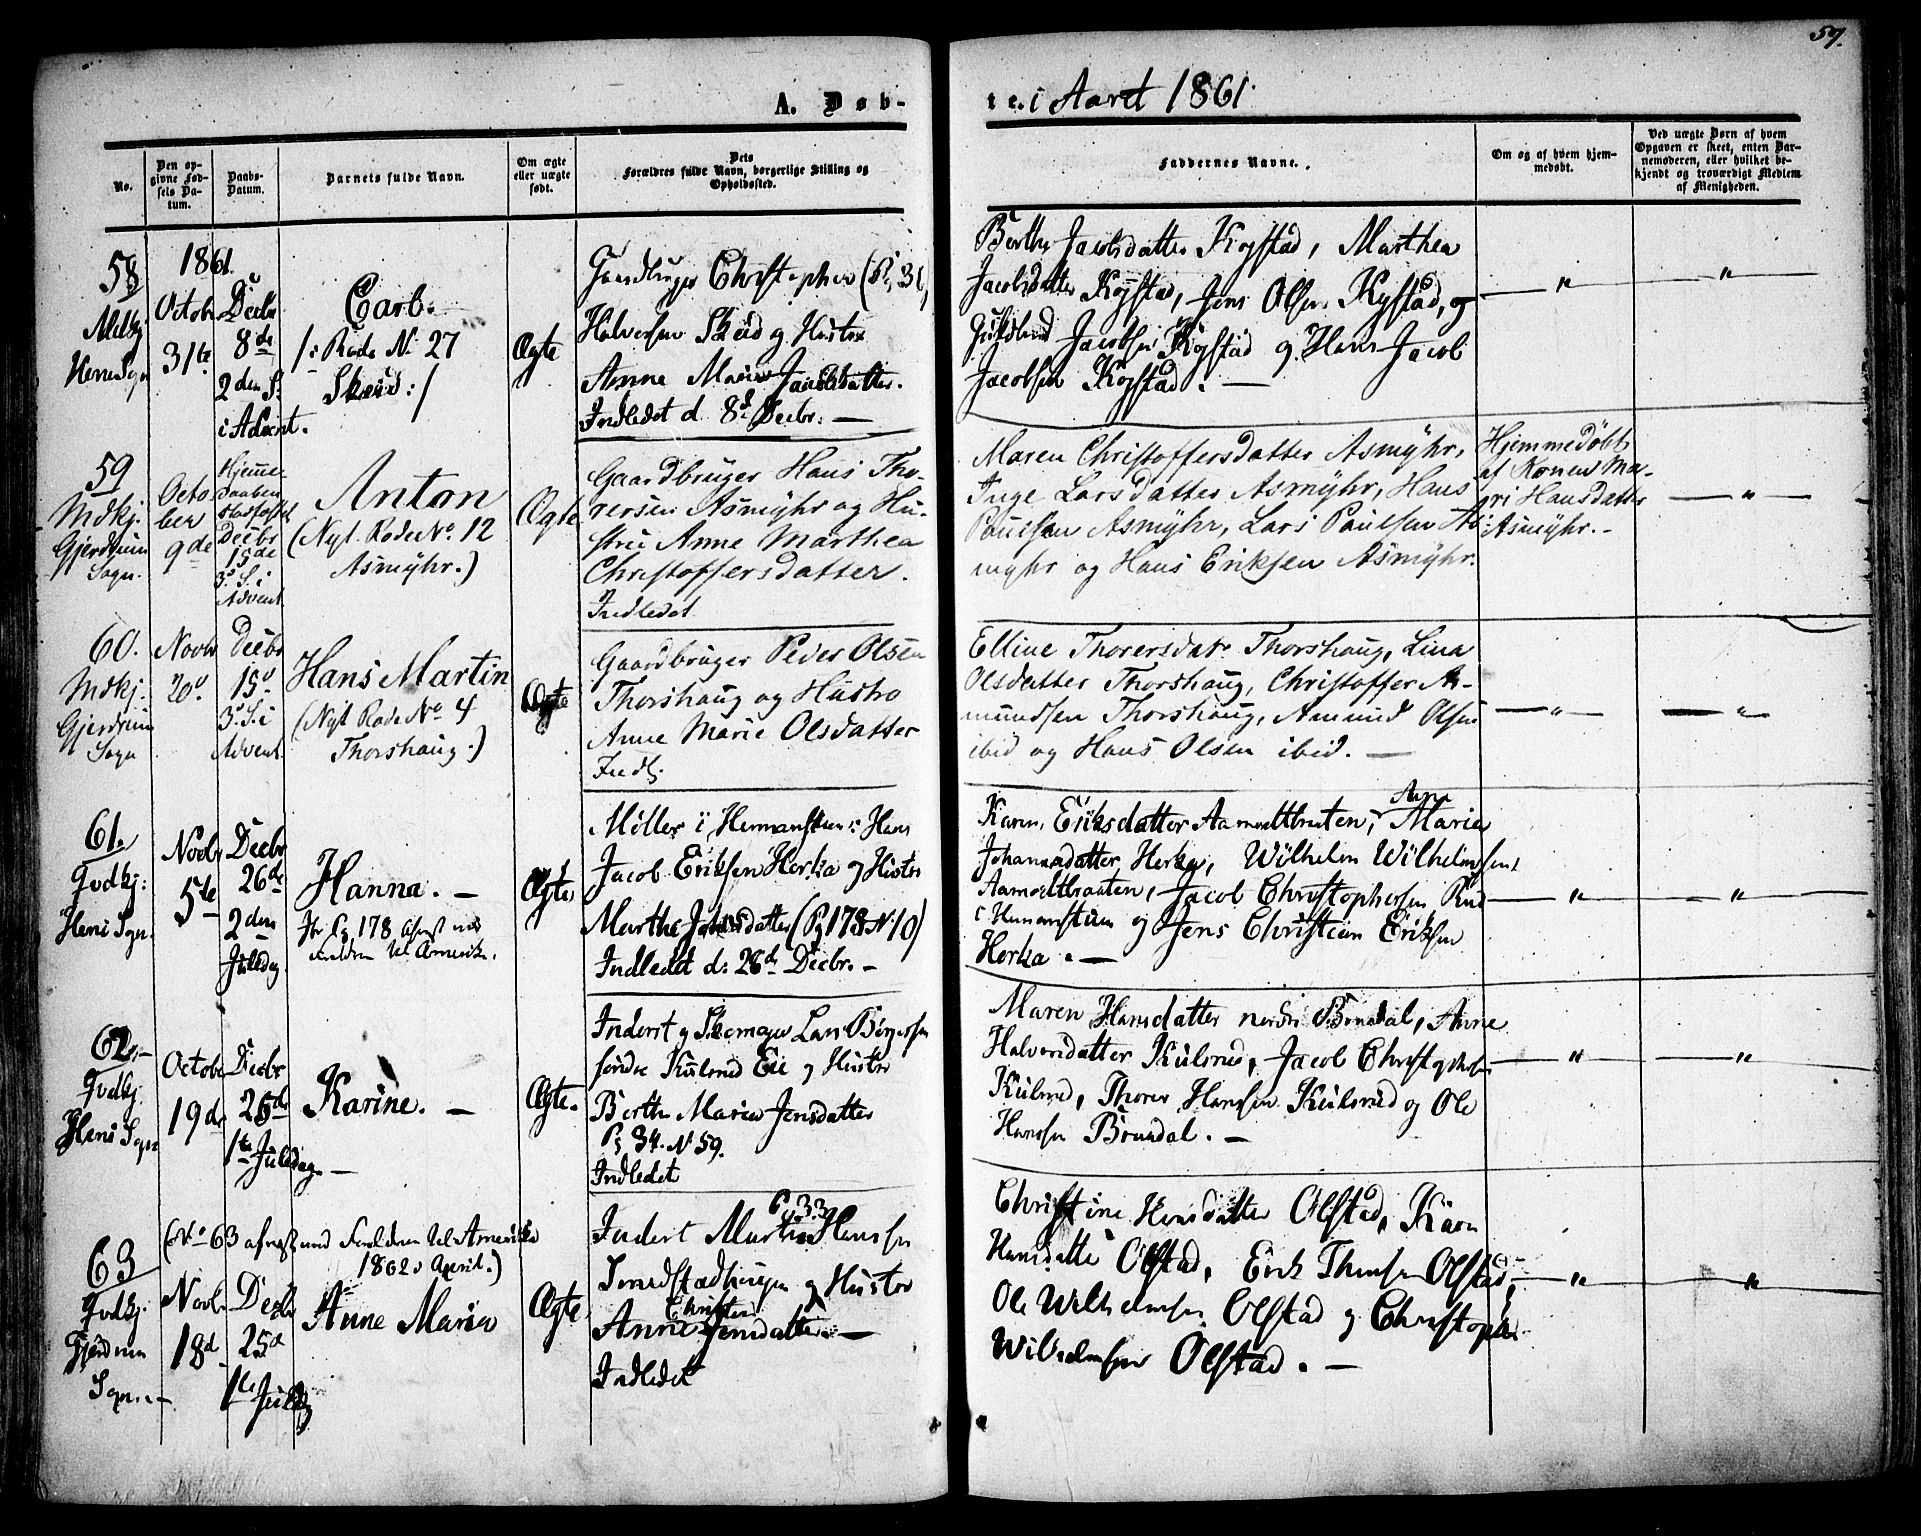 57.
A. Døb-
te. i Aaret 1861.
No.
Den op-
givne Fød-
sels Da-
tum.
Daabs-
Datum.
Barnets fulde Navn.
Om ægte
eller uægte
født.
Dets
Forældres fulde Navn, borgerlige Stilling og
Opholdssted.
Faddernes Navne.
Om og af hvem hjem-
medøbt.
Ved uægte Børn af hvem
Opgaven er skeet, enten Bar-
nemoderen, eller hvilket be-
kjendt og troværdigt Medlem
af Menigheden.
58
1861.
Octobr
31te
Decbr
8de
2den S.
i Advent.
/: i Rode No 27
Skeid :/
Ægte
Halvorsen Skeid og Hustro
Anne Maria Jacobsdatter.
Indledet d. 8d Decbr. —
Berthe Jacobsdatter Kogstad, Marthea
Jacobsdatter Kogstad, Jens Olsen Kogstad, og
Jacobsen Kogstad og Hans Jacob
Jacobsen Kogstad. —
— " —
— " —
59
Mdkj.
Gjerdrum
Sogn.
Octo
ber
9de
Hjemme-
daaben
stadfæstet
Decbr
15de
3. S. i
Advent
Anton
(Nyt. Rode No. 12
Asmyhr.)
Ægte
Gaardbruger Hans Tho-
rersen Asmyhr og Hu-
stru Anne Marthea
Christoffersdatter.
Indledet
Maren Christoffersdatter Asmyhr,
Inge Larsdatter Asmyhr, Hans
Paulsen Asmyhr, Lars Paulsen As-
myhr og Hans Eriksen Asmyhr.
Hjemmedøbt
af Konen Ma-
ri Hansdatter
Asmyhr. -
— " —
60.
Mdkj.
Gjerdrum
Sogn
Novbr
20d.
Decbr
15d
3. S. i
Advent
Hans Martin
(Nyt Rode No 4
Thorshaug.)
Ægte
Gaardbruger Peder Olsen
Thorshaug og Hustro
Anne Marie Olsdatter
Indl.
Elline Thorersdatr Thorshaug, Lina
Olsdatter Thorshaug, Christoffer A-
mundsen Thorshaug, Amund Olsen
ibid og Hans Olsen ibid. —
— " —
— " —
61.
Gvdkj:
Heni Sgn.
Novbr
5te
Decbr
26de
2den
Juledag
Hanna. —
Fr Pg 178 afrejst med
Forældren til Amerika.
Ægte
Møller i Hermanstuen: Hans
Jacob Eriksen Herka og Hustro
Marthe Johnsdatter (Pg 178 N 10)
Indledet d: 26d Decbr. —
Karen Eriksdatter Aamodtbraaten, Anne
Maria
Johannsdatter Herka, Wilhelm Wilhelmsen
Aamodtbraaten, Jacob Christophersen Rud
i Hermanstuen og Jens Christian Eriksen
Herka. —
— " —
— " —
62. —
Gvdkj.
Heni Sogn
October
19de
Decbr
25de
1ste Juledag. —
Karine. —
Ægte.
Inderst og Skomager Lars Børgersen
søndre Kulsrud Eie og Hustro
Berthe Maria Jensdatter
Pg 34. N 59.
Indledet
Maren Hansdatter nordre Brudal, Anne
Halvorsdatter Kulsrud, Jacob Christophersen
Kulsrud, Thorer Hansen Kulsrud og Ole
Hansen Brudal. —
— " —
— " —
(No 63 afrejst med Forældren til Amerika
1862 April.)
63
Gvdkj.
Gjerdrum
Sogn —
Novbr
18d
Decbr
25d
1ste Juledg
Anne Maria
Ægte.
Pg 33
Inderst Martin Hansen
og Hustro
Christine
Anne Jensdatter. —
Indledet
Christine Hansdatter Olstad, Karn
Hansdatter Olstad, Erik Thorsen Olstad,
Ole Wilhelmsen Olstad og Christopher
Wilhelmsen Olstad. —
— " —
"